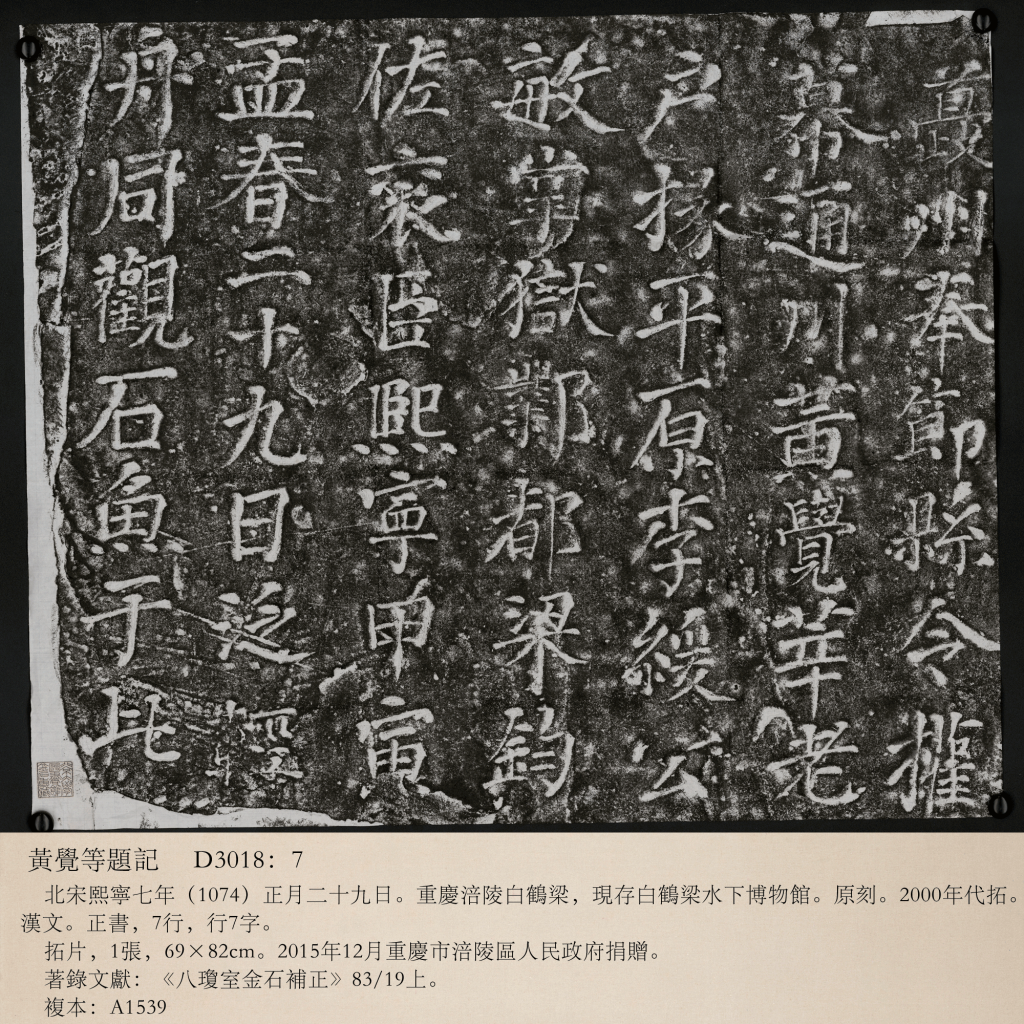 夔州奉節縣令權
幕通川黃覺莘老
户掾平原李緩公
敏掌獄酆都梁鈞
佐袞臣熙寧甲寅
孟春二十九日泛輕
舟同觀石魚于此
黃覺等題記 D3018：7
北宋熙寧七年（1074）正月二十九日。重慶涪陵白鶴梁，現存白鶴梁水下博物館。原刻。2000年代拓。
漢文。正書，7行，行7字。
拓片，1張，69×82cm。2015年12月重慶市涪陵區人民政府捐贈。
著錄文獻：《八瓊室金石補正》83/19上。
複本：A1539